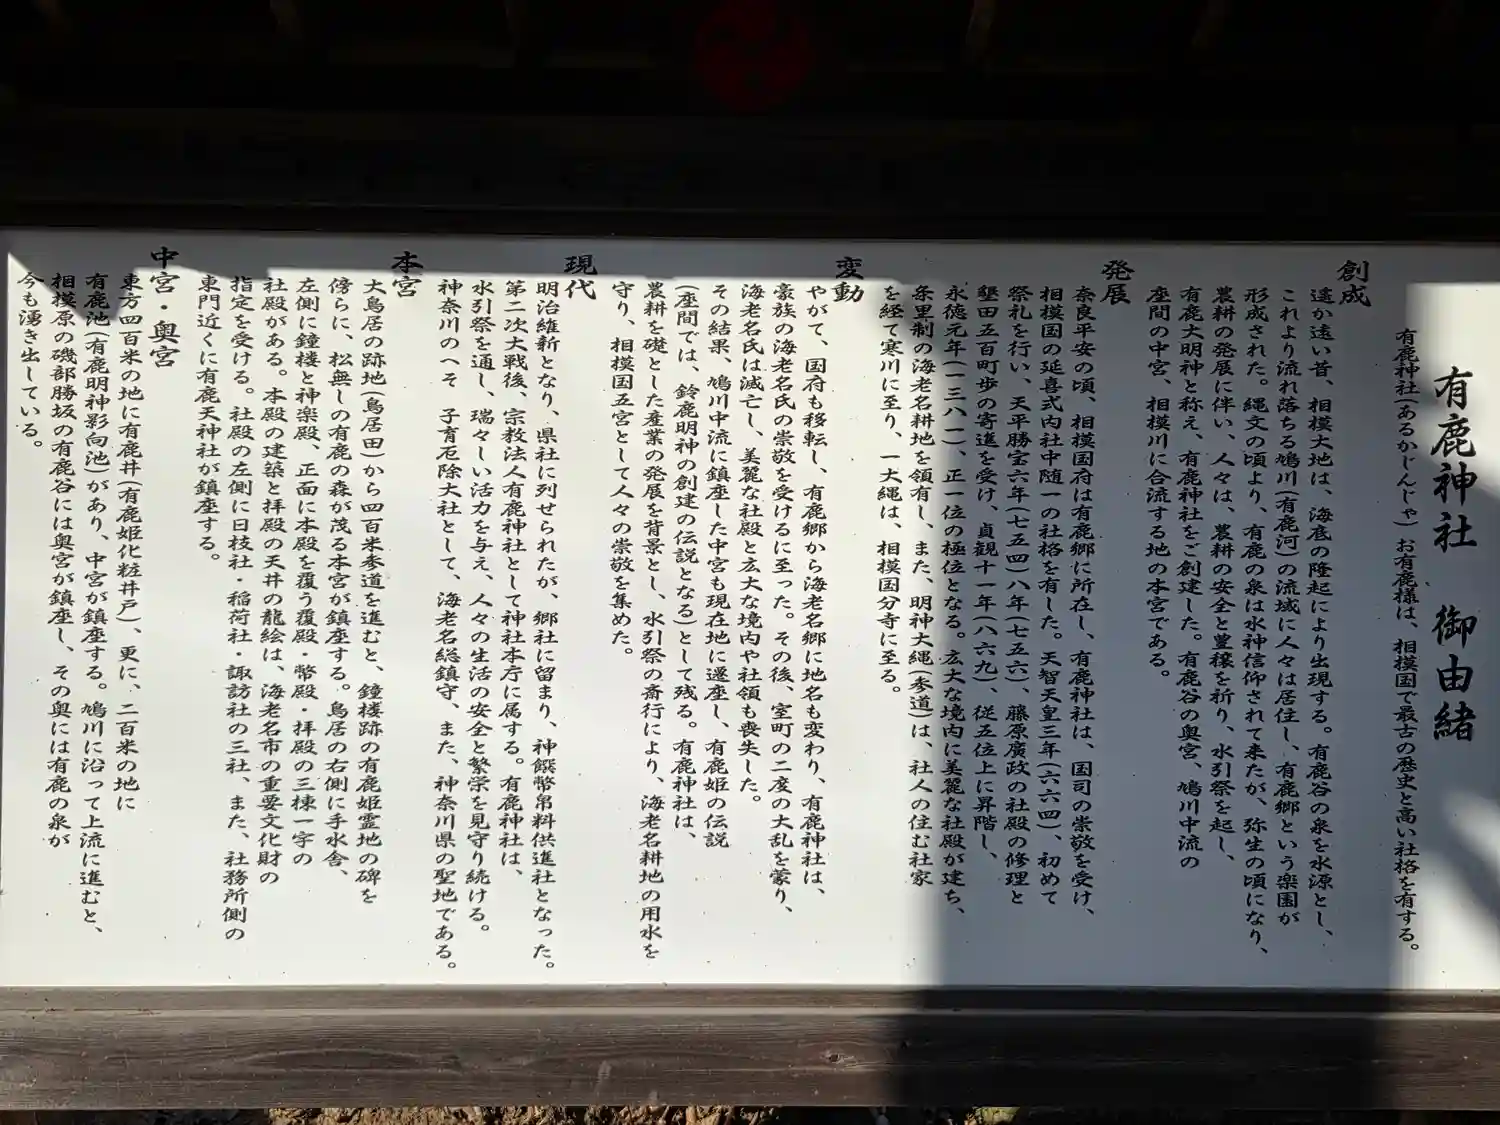 有鹿神社 御由緒
有鹿神社(あるかじんじゃ) お有鹿様は、相模国で最古の歴史と高い社格を有する。
創成
遥か遠い昔、相模大地は、海底の隆起により出現する。有鹿谷の泉を水源とし、
これより流れ落ちる鳩川(有鹿河)の流域に人々は居住し、有鹿郷という楽園が
形成された。縄文の頃より、有鹿の泉は水神信仰されて来たが、弥生の頃になり、
農耕の発展に伴い、人々は、農耕の安全と豊穣を祈り、水引祭を起し、
有鹿大明神と称え、有鹿神社をご創建した。有鹿谷の奥宮、鳩川中流の
座間の中宮、相模川に合流する地の本宮である。
発展
奈良平安の頃、相模国府は有鹿郷に所在し、有鹿神社は、国司の崇敬を受け、
相模国の延喜式内社中随一の社格を有した。天智天皇三年(六六四)、初めて
祭礼を行い、天平勝宝六年(七五四)八年(七五六)、藤原廣政の社殿の修理と
墾田五百町歩の寄進を受け、貞観十一年(八六九)、従五位上に昇階し、
永徳元年(一三八一)、正一位の極位となる。広大な境内に美麗な社殿が建ち、
条里制の海老名耕地を領有し、また、明神大縄(参道)は、社人の住む社家
を経て寒川に至り、一大縄は、相模国分寺に至る。
変動
やがて、国府も移転し、有鹿郷から海老名郷に地名も変わり、有鹿神社は、
豪族の海老名氏の崇敬を受けるに至った。その後、室町の二度の大乱を蒙り、
海老名氏は滅亡し、美麗な社殿と広大な境内や社領も喪失した。
その結果、鳩川中流に鎮座した中宮も現在地に遷座し、有鹿姫の伝説
(座間では、鈴鹿明神の創建の伝説となる)として残る。有鹿神社は、
農耕を礎とした産業の発展を背景とし、水引祭の斎行により、海老名耕地の用水を
守り、相模国五宮として人々の崇敬を集めた。
現代
明治維新となり、県社に列せられたが、郷社に留まり、神饌幣帛料供進社となった。
第二次大戦後、宗教法人有鹿神社として神社本庁に属する。有鹿神社は、
水引祭を通し、瑞々しい活力を与え、人々の生活の安全と繁栄を見守り続ける。
神奈川のへそ 子育厄除大社として、海老名総鎮守、また、神奈川県の聖地である。
本宮
大鳥居の跡地(鳥居田)から四百米参道を進むと、鐘楼跡の有鹿姫霊地の碑を
傍らに、松無しの有鹿の森が茂る本宮が鎮座する。鳥居の右側に手水舎、
左側に鐘楼と神楽殿、正面に本殿を覆う覆殿・幣殿・拝殿の三棟一宇の
社殿がある。本殿の建築と拝殿の天井の龍絵は、海老名市の重要文化財の
指定を受ける。社殿の左側に日枝社・稲荷社・諏訪社の三社、また、社務所側の
東門近くに有鹿天神社が鎮座する。
中宮・奥宮
東方四百米の地に有鹿井(有鹿姫化粧井戸)、更に、二百米の地に
有鹿池(有鹿明神影向池)があり、中宮が鎮座する。鳩川に沿って上流に進むと、
相模原の磯部勝坂の有鹿谷には奥宮が鎮座し、その奥には有鹿の泉が
今も湧き出している。